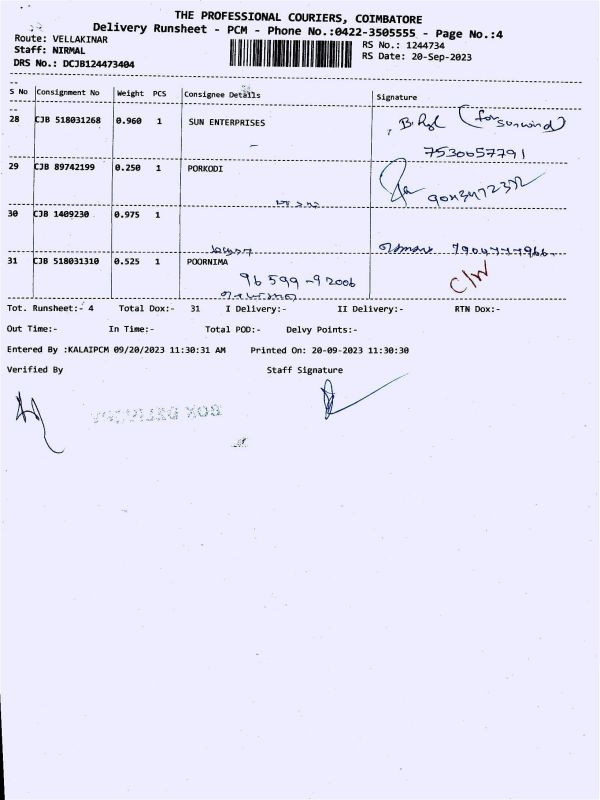 THE PROFESSIONAL COURIERS, COIMBATORE
Delivery Runsheet - PCM - Phone No.:0422-3505555 - Page No.:4
Route: VELLAKINAR
Staff: NIRMAL
DRS No.: DCJB124473404
RS No.: 1244734
RS Date: 20-Sep-2023
S No Consignment No Weight PCS Consignee Details Signature
28 CJB 518031268 0.960 1 SUN ENTERPRISES
7530657791
29 CJB 89742199 0.250 1 PORKODI
30 CJB 1409230 0.975 1
31 CJB 518031310 0.525 1 POORNIMA
96 599 -9 2006
Tot. Runsheet:- 4 Total Dox:- 31 I Delivery:- II Delivery:- RTN Dox:-
Out Time:- In Time:- Total POD:- Delvy Points:-
Entered By :KALAIPCM 09/20/2023 11:30:31 AM Printed On: 20-09-2023 11:30:30
Verified By Staff Signature